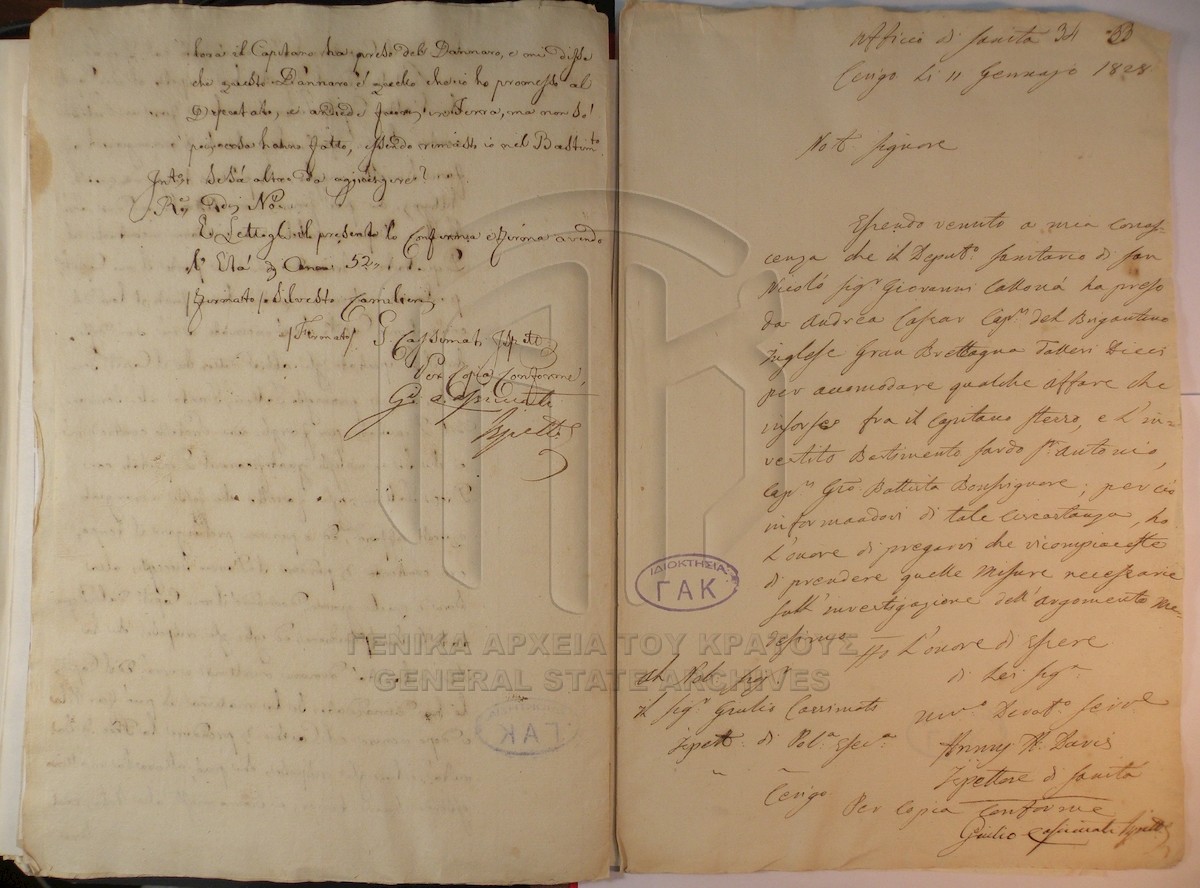 lora il Capitano ha preso del Dannaro, e mi disse
che questo Dannaro è quello che io ho promesso al
Deputato, e andiede in Terra, ma non so
hanno fatto, essendo rimasto io nel Bastimto
Intto Se sà altro da aggiungere?
Rse Di No.
E Lettogli il presente lo Conferma e Firma avendo
l'Età di Anni 52
/Firmato/ Silvestro Camilieri
/Firmato/ G. Cassimati Ispette
Per Copia Conforme,
G. Cassimati
Ispette
Officio di Sanità 34 33
Cerigo Li 11 Gennajo 1828
Nob. Signore
Essendo venuto a mia conos-
cenza che il Deputo Sanitario di San
Nicolò Sigr Giovanni Callonà ha preso
da Andrea Cassar Capn del Brigantino
Inglese Gran Brettagna Talleri Dieci
per accomodare qualche affare che
insorse fra il Capitano stesso, e L'in-
vertito Bastimento Sardo Sn Antonio,
Capn Gio. Battista Bonsignore; perciò
informandovi di tale circostanza, ho
L'onore di pregarvi che vi compiaceste
di prendere quelle Misure necessarie
sull'investigazione dell'argomento me-
desimo
Ho L'onore di essere
di Lei Sigr
Al Nob. Sigr
Il Sigr Giulio Cassimati
Ispette di Pola Esecva
" Cerigo
Devoto Serve
Henry H. Davis
Ispettore di Sanità
Per Copia Conforme
Giulio Cassimati Ispette
ΙΔΙΟΚΤΗΣΙΑ
ΓΑΚ
ΓΑΚ
ΓΕΝΙΚΑ ΑΡΧΕΙΑ ΤΟΥ ΚΡΑΤΟΥΣ
GENERAL STATE ARCHIVES